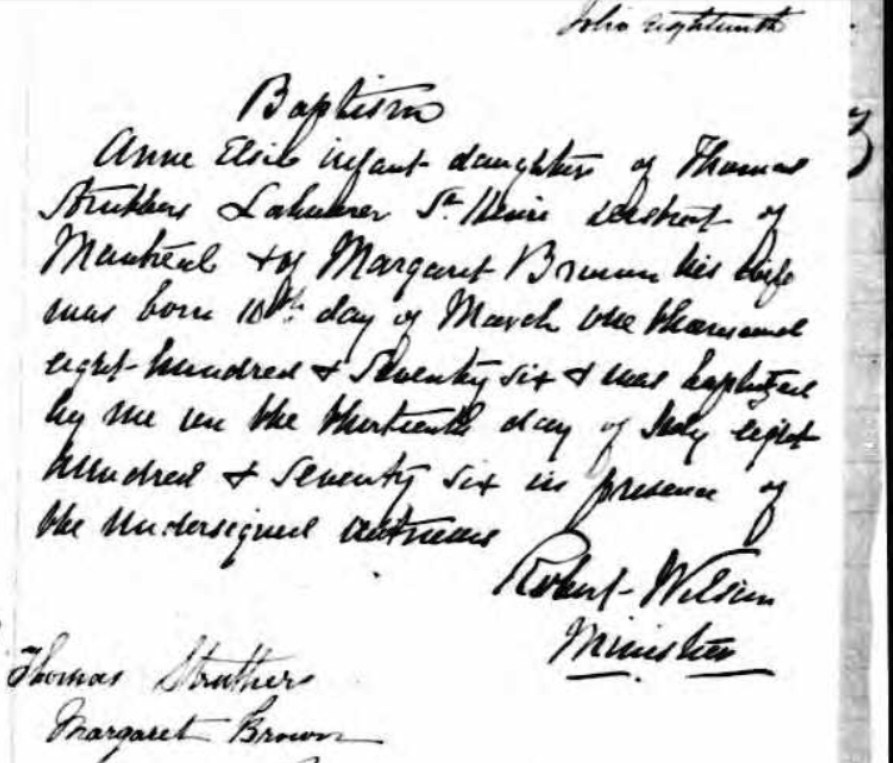 Folio eighteenth
Baptism
Anne Elsie infant daughter of Thomas
Struthers Labourer St Henri District of
Montreal & of Margaret Brown his wife
was born 10th day of March one thousand
eight hundred & seventy six & was baptized
by me on the thirteenth day of July eight
hundred & seventy six in presence of
the undersigned witnesses
Robert Wilson
Minister
Thomas Struthers
Margaret Brown